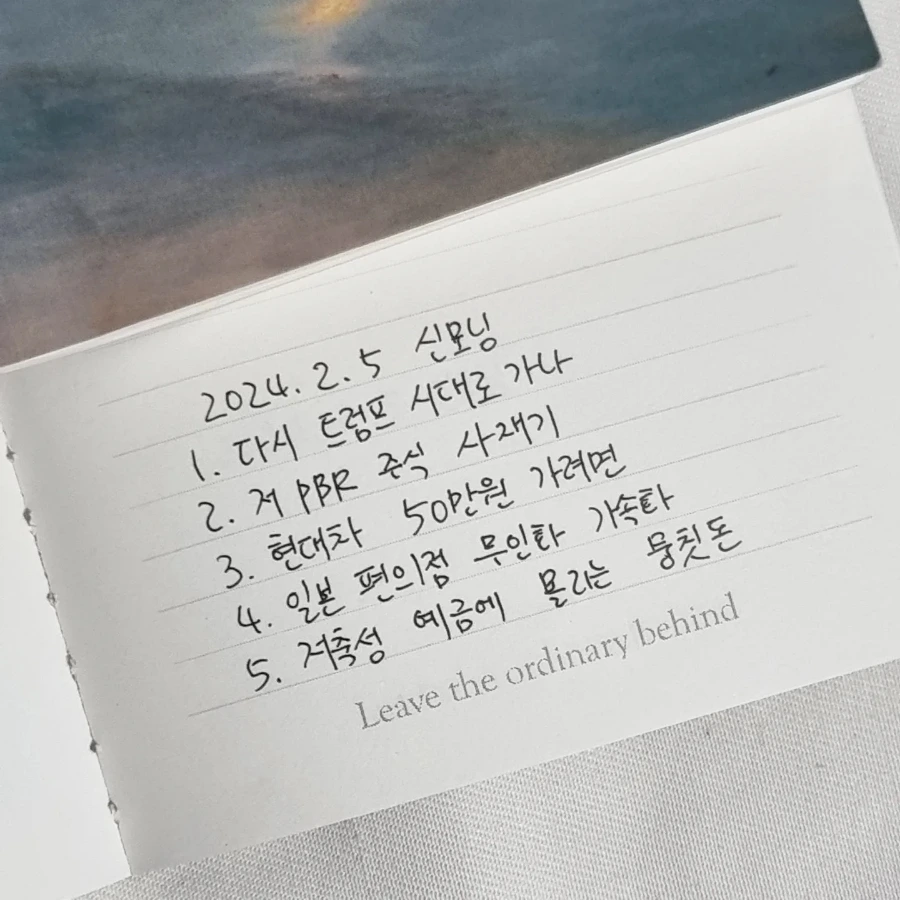 2024. 2. 5 신모닝
1. 다시 트럼프 시대로 가나
2. 저 PBR 주식 사재기
3. 현대차 50만원 가려면
4. 일본 편의점 무인화 가속화
5. 저축성 예금에 몰리는 뭉칫돈
Leave the ordinary behind